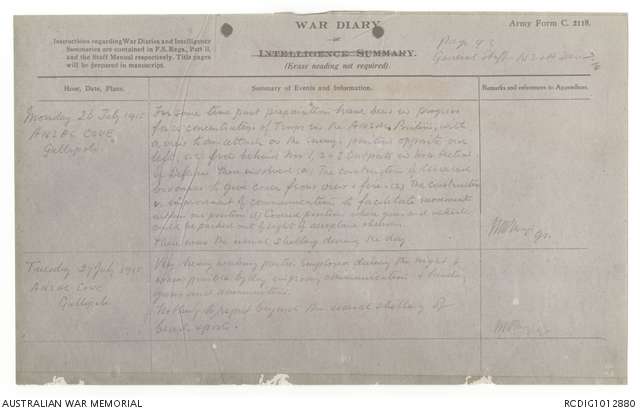 WAR DIARY
or
INTELLIGENCE SUMMARY.
(Erase heading not required).
Army Form C. 2118.
Instructions regarding War Diaries and Intelligence
Summaries are contained in F.S. Regs., Part II.
and the Staff Manual respectively. Title pages
will be prepared in manuscript.
Page 43
General Staff NZ & A Div
Hour, Date, Place.
Summary of Events and Information.
Remarks and references to Appendices.
Monday 26 July 1915
ANZAC COVE
Gallipoli
For some time past preparations have been in progress
for a concentration of Troops in the ANZAC Position, with
a view to an attack on the enemy position opposite our
left, and from behind Nos 1, 2 & 3 Outposts in
of Defence. These involved (a) The construction of
bivouacs to give cover from view & fire (b) The construction
& improvement of communications to facilitate movement
within our position (c) Covered positions where guns and vehicles
could be parked out of sight of aeroplane observers.
There was the usual shelling during the day
Tuesday 27 July 1915
ANZAC COVE
Gallipoli
Very heavy working parties employed during the night, &
when possible by day improving communications &
guns and ammunition.
Nothing to report beyond the usual shelling of
beach & posts.